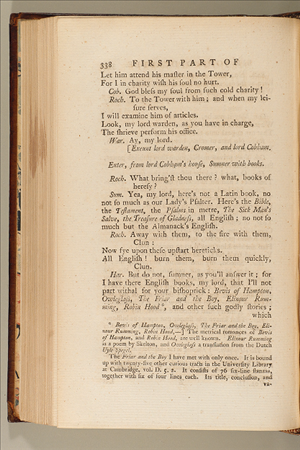 338 FIRST PART OF
Let him attend his master in the Tower,
For I in charity wish his soul no hurt.
Cob. God bless my soul from such cold charity!
Roch. To the Tower with him; and when my lei-
sure serves,
I will examine him of articles.
Look, my lord warden, as you have in charge,
The shrieve perform his office.
War. Ay, my lord.
[Exeunt lord warden, Cromer, and lord Cobham.
Enter, from lord Cobham's house, Sumner with books.
Roch. What bring'st thou there? what, books of
heresy?
Sum. Yea, my lord, here's not a Latin book, no
not so much as our Lady's Psalter. Here's the Bible,
the Testament, the Psalms in metre, The Sick Man's
Salve, the Treasure of Gladness, all English; no not so
much but the Almanack's English.
Roch. Away with them, to the fire with them,
Clun:
Now fye upon these upstart hereticks.
All English! burn them, burn them quickly,
Clun.
Har. But do not, sumner, as you'll answer it; for
I have there English books, my lord, that I'll not
part withal for your bishoprick: Bevis of Hampton,
Owleglass, The Friar and the Boy, Ellinour Rum-
ming, Robin Hood*, and other such godly stories;
which
* Bevis of Hampton, Owleglass, The Friar and the Boy, Elli-
nour Rumming, Robin Hood,—] The metrical romances of Bevis
of Hampton, and Robin Hood, are well known. Ellinour Rumming
is a poem by Skelton, and Owleglass a translation from the Dutch
The Friar and the Boy I have met with only once. It is bound
up with twenty-five other curious tracts in the University Library
at Cambridge, vol. D. 5. 2. It consists of 76 six-line stanzas,
together with six of four lines each. Its title, conclusion, and
va-